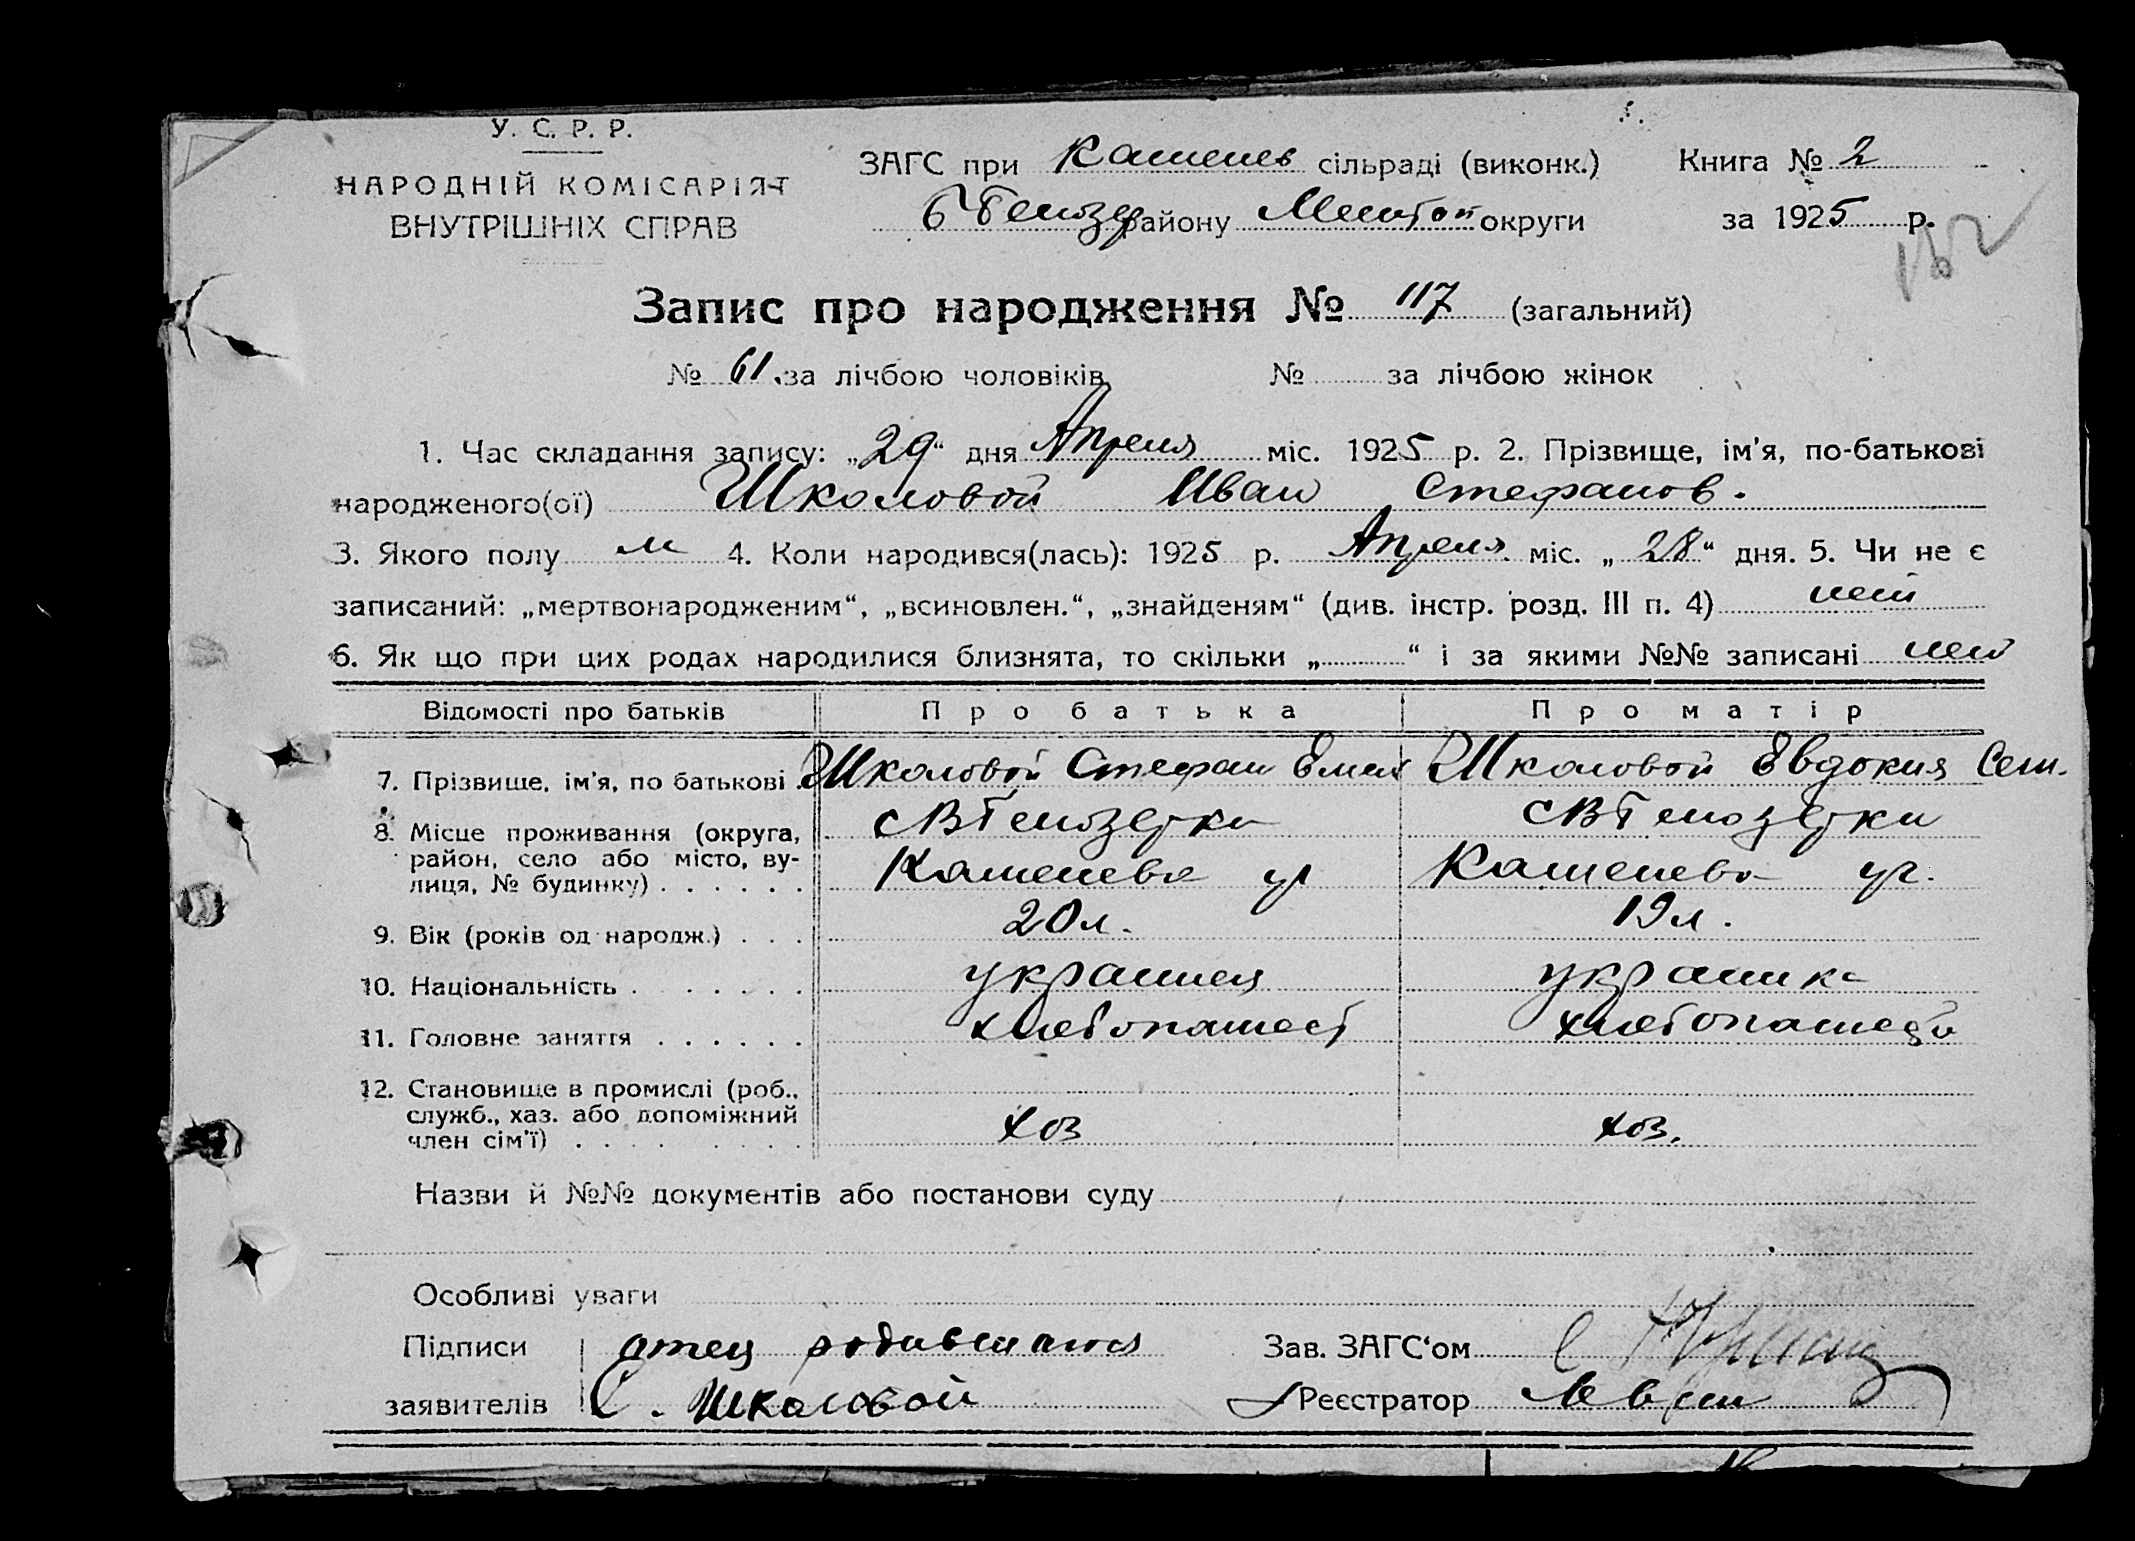 У. С. Р. Р.
НАРОДНІЙ КОМІСАРІЯТ
ВНУТРІШНІХ СПРАВ
ЗАГС при Каменев сільраді (виконк.) Книга № 2
району округи за 1925 р.
Запис про народження № 117 (загальний)
№ 61 за лічбою чоловіків № за лічбою жінок
1. Час складання запису: „29“ дня Апреля міс. 1925 р. 2. Прізвище, ім'я, по-батькові
народженого(ої) Школовой Иван Стефанов.
3. Якого полу м 4. Коли народився(лась): 1925 р. Апреля міс. „28“ дня. 5. Чи не є
записаний: „мертвонародженим“, „всиновлен.“, „знайденям“ (див. інстр. розд. III п. 4) нет
6. Як що при цих родах народилися близнята, то скільки „ “ і за якими №№ записані нет
Відомості про батьків Про батька Про матір
7. Прізвище, ім'я, по батькові . Школовой Стефан Емел Школовой Евдокия Сем.
8. Місце проживання (округа,
район, село або місто, ву-
лиця, № будинку) . . . . . .
с Белозерки с Белозерки
Каменева ул Каменева ул.
9. Вік (років од народж.) . . . 20 л. 19 л.
10. Національність . . . . . . украинец украинка
11. Головне заняття . . . . . .
12. Становище в промислі (роб.,
служб., хаз. або допоміжний
член сім'ї) . . . . . . . . хоз хоз.
Назви й №№ документів або постанови суду
Особливі уваги
Підписи отец родившагося Зав. ЗАГС'ом
заявителів С. Школовой Реєстратор